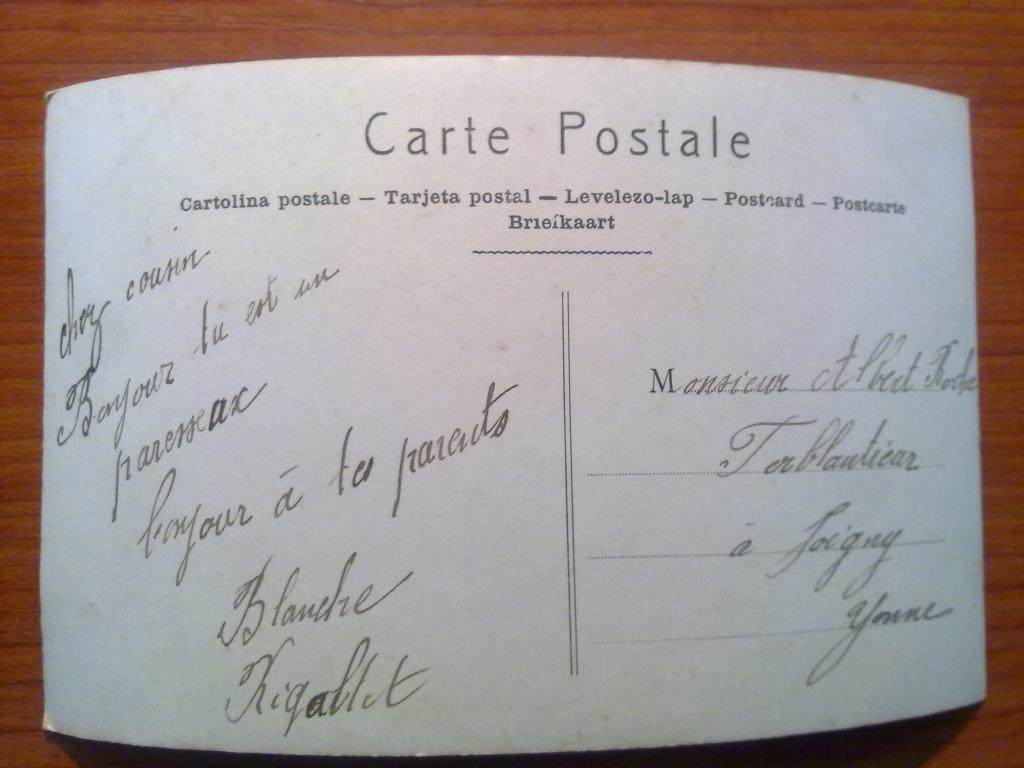 Carte Postale
Cartolina postale — Tarjeta postal — Levelezo-lap — Postcard — Postcarte
Briefkaart
cher cousin
Bonjour tu est un
paresseax
bonjour à tes parents
Blanche
Rigollet
Monsieur Albert Roche
Ferblantier
à Joigny
Yonne